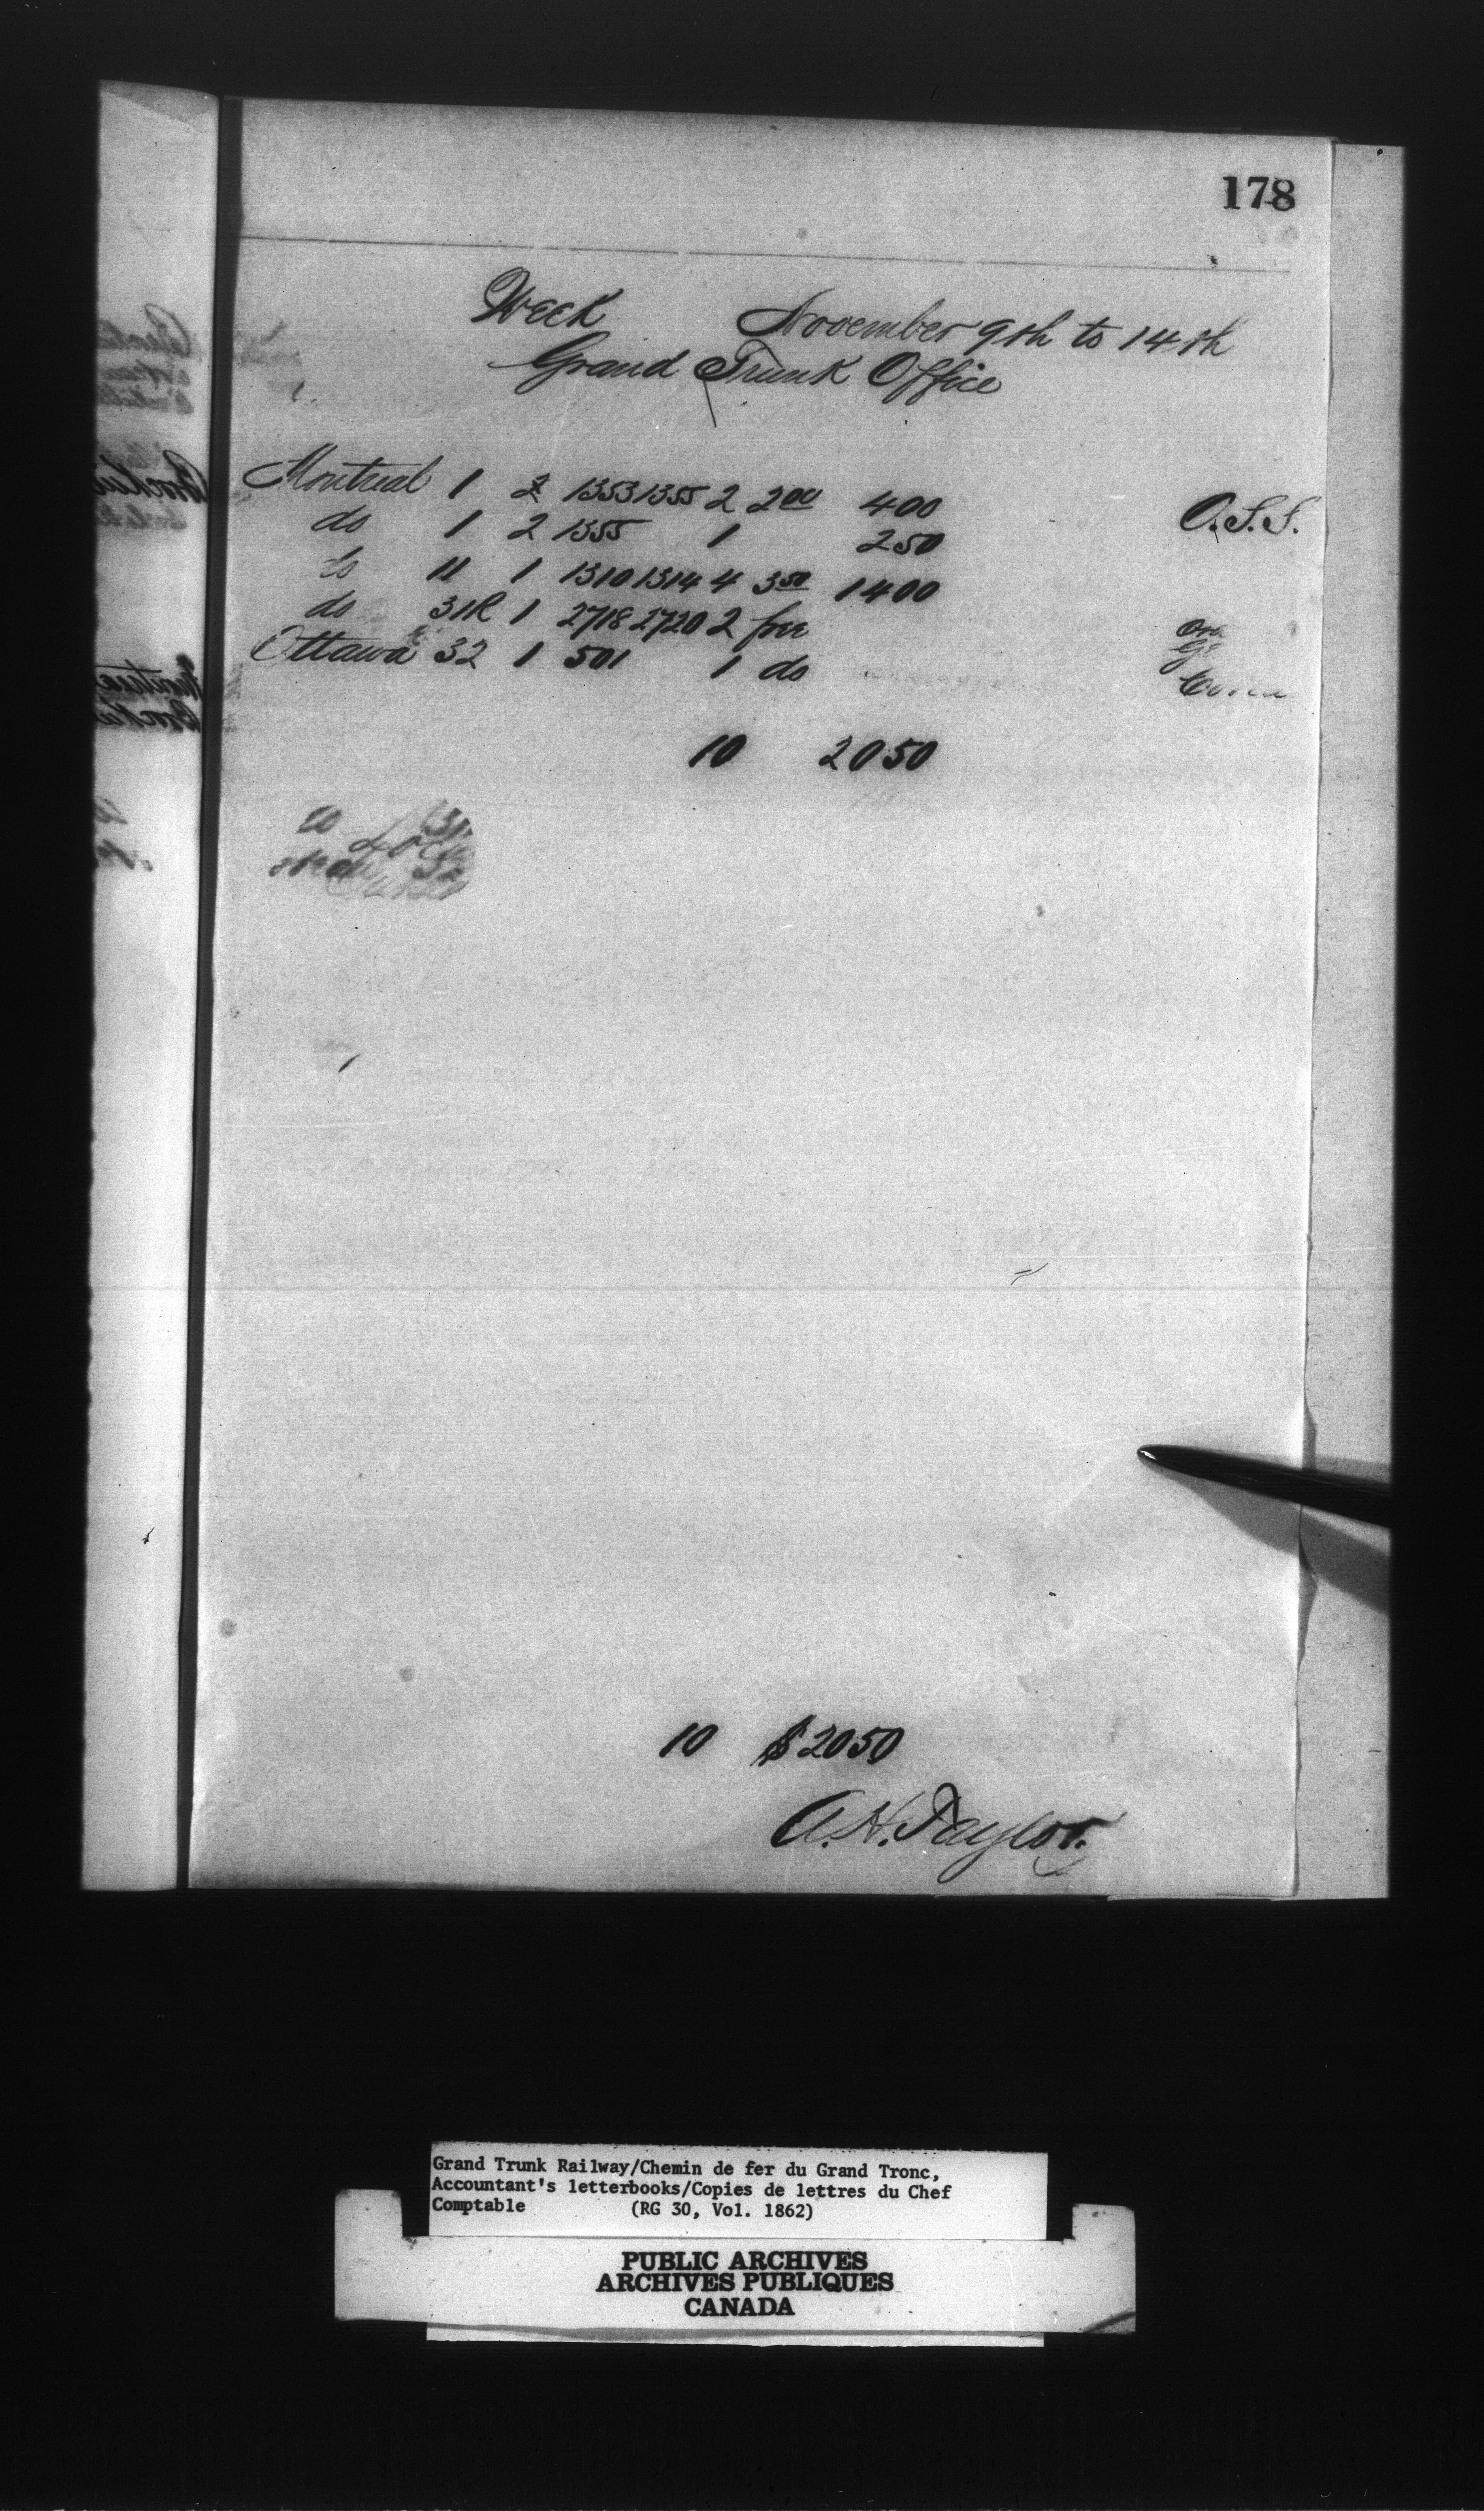 178
Week November 9th to 14th
Grand Trunk Office
Montreal 1 2 1353 1355 2 2 00 400 O.S.S.
do 1 2 1355 1 250
do 11 1 1310 1314 4 3 50 1400
do 31R 1 2718 2720 2 free
Ottawa 32 1 501 1 do
10 2050
10 $2050
A.H. Taylor
Grand Trunk Railway/Chemin de fer du Grand Tronc,
Accountant's letterbooks/Copies de lettres du Chef
Comptable (RG 30, Vol. 1862)
PUBLIC ARCHIVES
ARCHIVES PUBLIQUES
CANADA